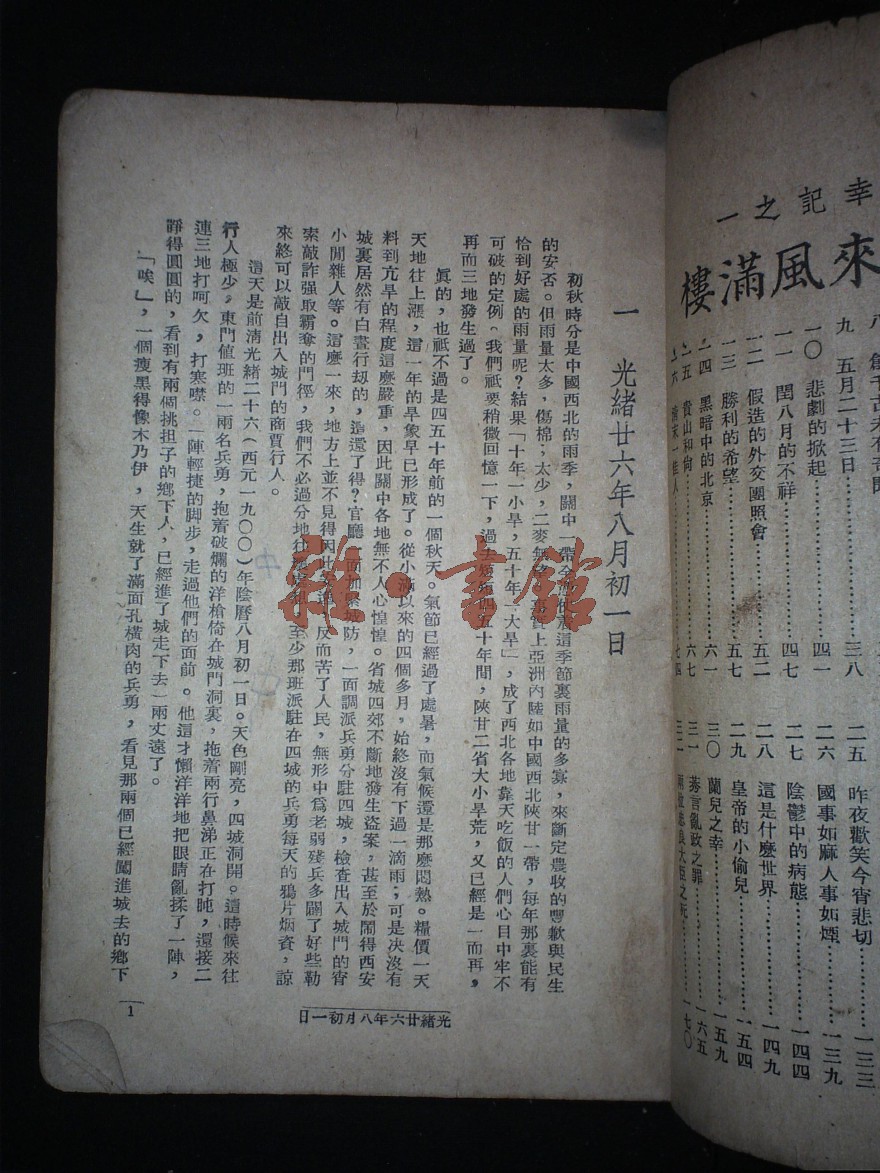 幸記之一
來風滿樓
九 五月二十三日……三八
一〇 悲劇的掀起……四一
一一 閏八月的不祥……四七
一二 假造的外交團照會……五二
一三 勝利的希望……五七
一四 黑暗中的北京……六一
六七
七四
二五 昨夜歡笑今宵悲切……一三三
二六 國事如麻人事如煙……一三九
二七 陰鬱中的病態……一四四
二八 這是什麼世界……一四九
二九 皇帝的小偷兒……一五四
三〇 蘭兒之幸……一五九
三一 莠言亂政之罪……一六五
三二 大臣之死……一七〇
一 光緒廿六年八月初一日
初秋時分是中國西北的雨季,關中一帶全這季節裏雨量的多寡,來斷定農收的豐歉與民生
的安否。但雨量太多,傷棉;太少,二麥無上亞洲內陸如中國西北陝甘一帶,每年那裏能有
恰到好處的雨量呢?結果「十年一小旱,五十年一大旱」,成了西北各地靠天吃飯的人們心目中牢不
可破的定例。我們祇要稍微回憶一下,過去短短四五十年間,陝甘二省大小旱荒,又已經是一而再,
再而三地發生過了。
眞的,也祇不過是四五十年前的一個秋天。氣節已經過了處暑,而氣候還是那麽悶熱。糧價一天
天地往上漲,這一年的旱象早已形成了。從小滿以來的四個多月,始終沒有下過一滴雨;可是決沒有
料到亢旱的程度這麽嚴重,因此關中各地無不人心惶惶。省城四郊不斷地發生盜案,甚至於鬧得西安
城裏居然有白晝行刼的,這還了得?官廳一面加緊城防,一面調派兵勇分駐四城,檢查出入城門的宵
小閒雜人等。這麽一來,地方上並不見得因此安謐,反而苦了人民,無形中爲老弱殘兵多闢了好些勒
索敲詐强取霸奪的門徑,我們不必過分地往,至少那班派駐在四城的兵勇每天的鴉片烟資,諒
來終可以敲自出入城門的商賈行人。
這天是前淸光緒二十六(西元一九〇〇)年陰曆八月初一日。天色剛亮,四城洞開。這時候來往
行人極少,東門值班的一兩名兵勇,抱着破爛的洋槍倚在城門洞裏,拖着兩行鼻涕正在打盹,還接二
連三地打呵欠,打寒噤。一陣輕捷的脚步,走過他們的面前。他這才懶洋洋地把眼睛亂揉了一陣,
睜得圓圓的,看到有兩個挑担子的鄉下人,已經進了城走下去一兩丈遠了。
「唉」,一個瘦黑得像木乃伊,天生就了滿面孔橫肉的兵勇,看見那兩個已經闖進城去的鄉下
光緒廿六年八月初一日
1
雜書館